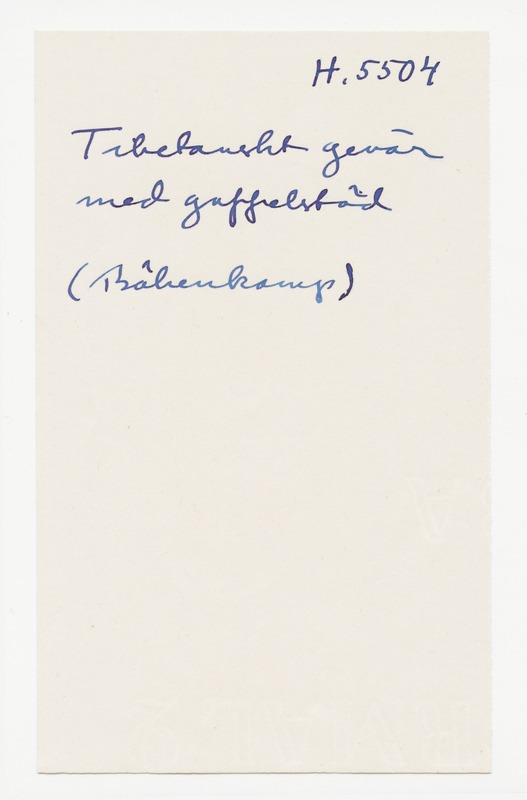 H. 5504
Tibetanskt gevär
med gaffelstöd
(Bökenkamp)